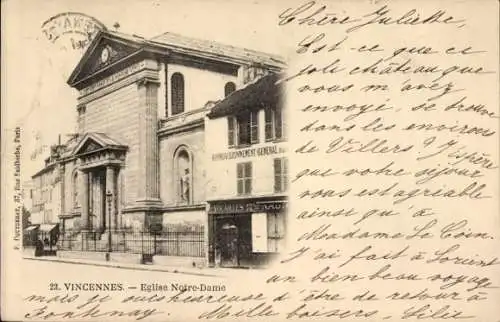 Chère Juliette,
Est-ce que ce
joli château que
vous m'avez
envoyé se trouve
dans les environs
de Villers ? J'espère
que votre séjour
vous est agréable
ainsi qu'à
Madame Le Coin.
J'ai fait à Orient
un bien beau voyage
mais suis heureuse d'être de retour à
Fontenay. Mille baisers, Lilie
APPROVISIONNEMENT GÉNÉRAL
P. Pouydebat, 37, Rue Faidherbe, Paris
23. VINCENNES. - Eglise Notre-Dame